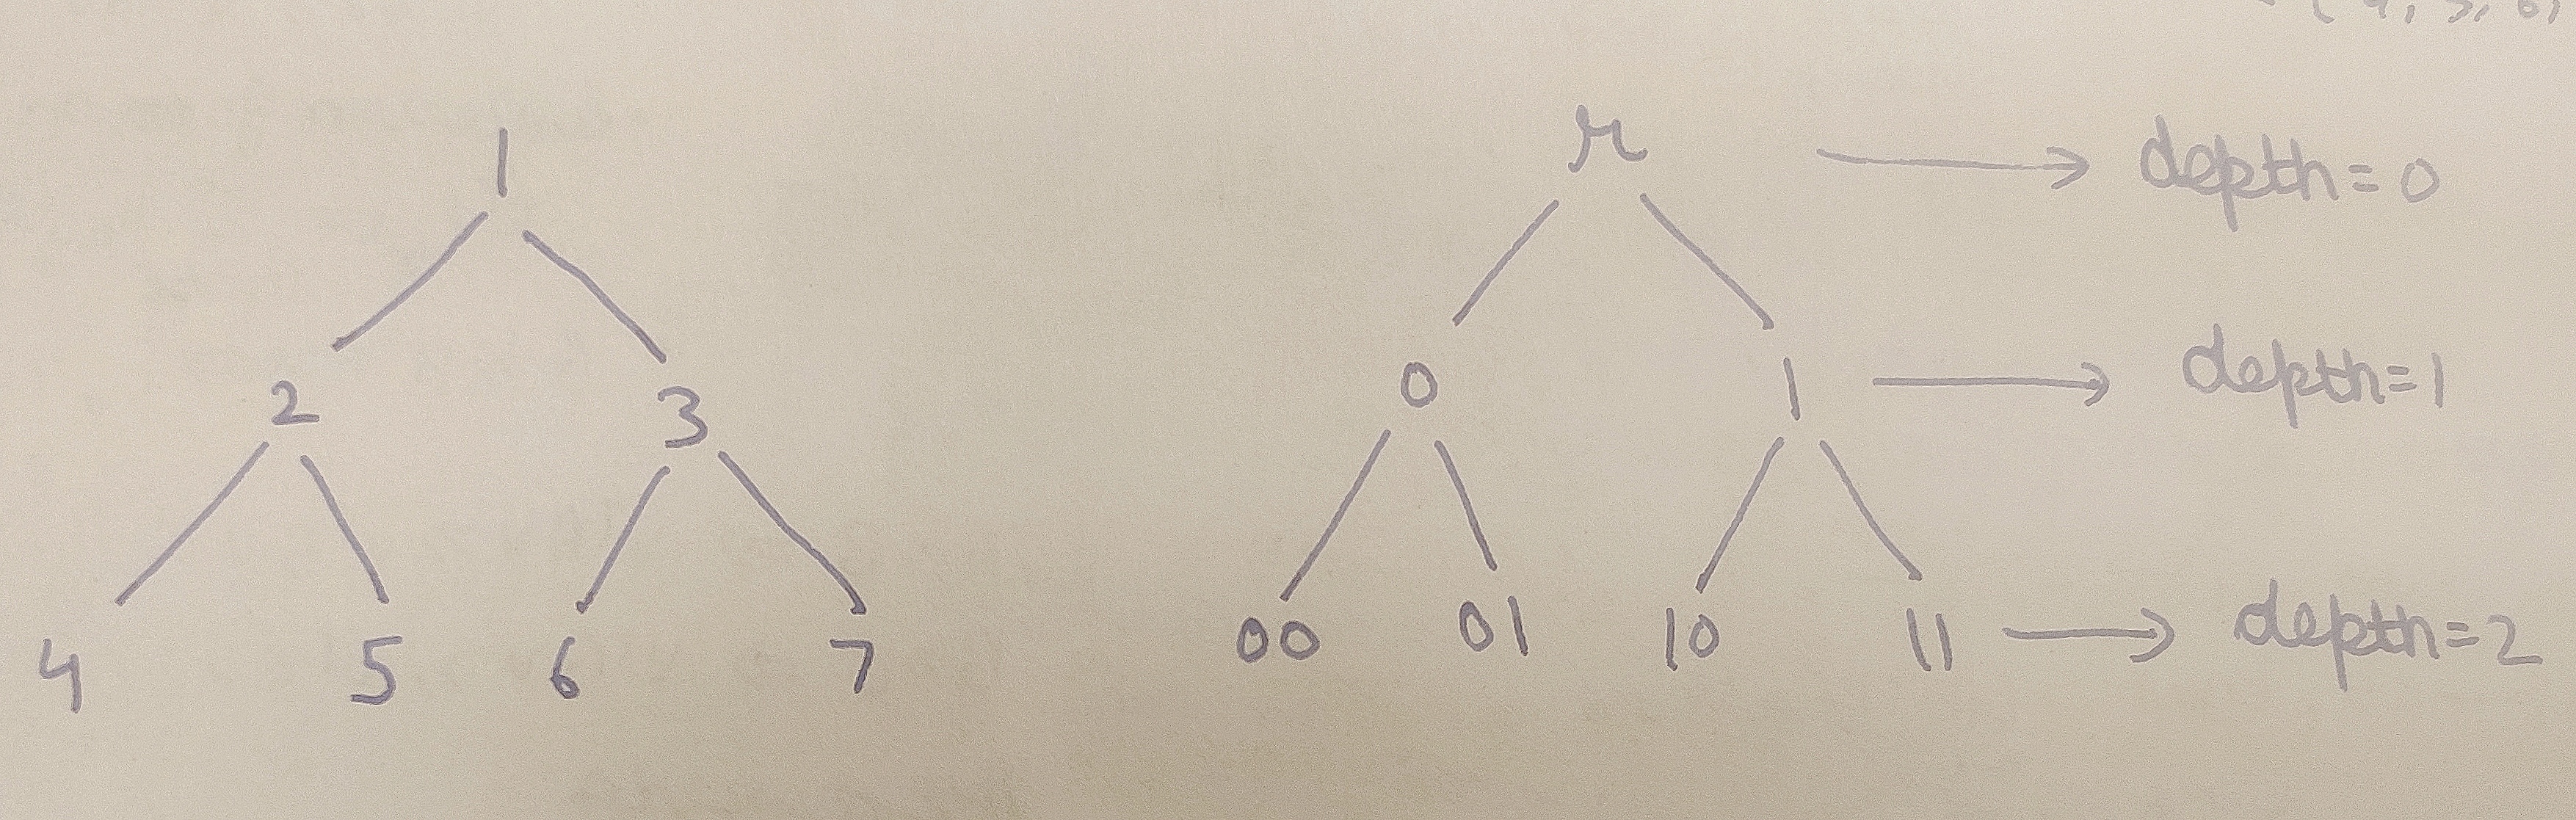 1
2 3
4 5 6 7
r depth=0
0 1 depth=1
00 01 10 11 depth=2